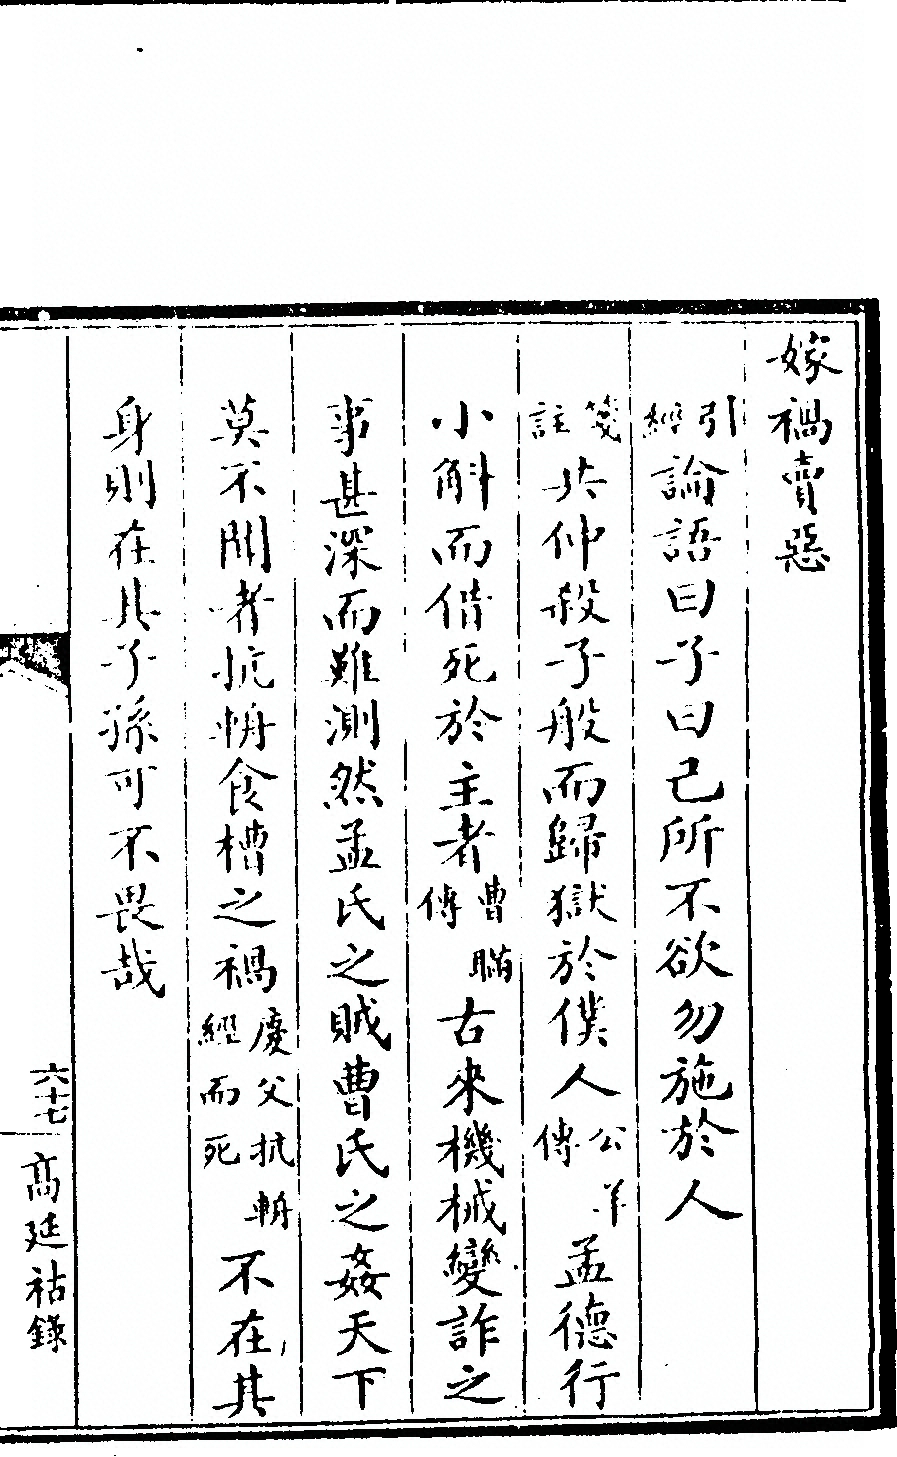 嫁禍賣惡
引經論語曰子曰己所不欲勿施於人
箋註共仲殺子般而歸獄於僕人公羊傳孟德行
小斛而借死於主者曹瞞傳古來機械變詐之
事甚深而難測然孟氏之賊曹氏之姦天下
莫不聞者抗輈食槽之禍慶父抗輈經而死不在其
身則在其子孫可不畏哉
六十七
高延祜錄